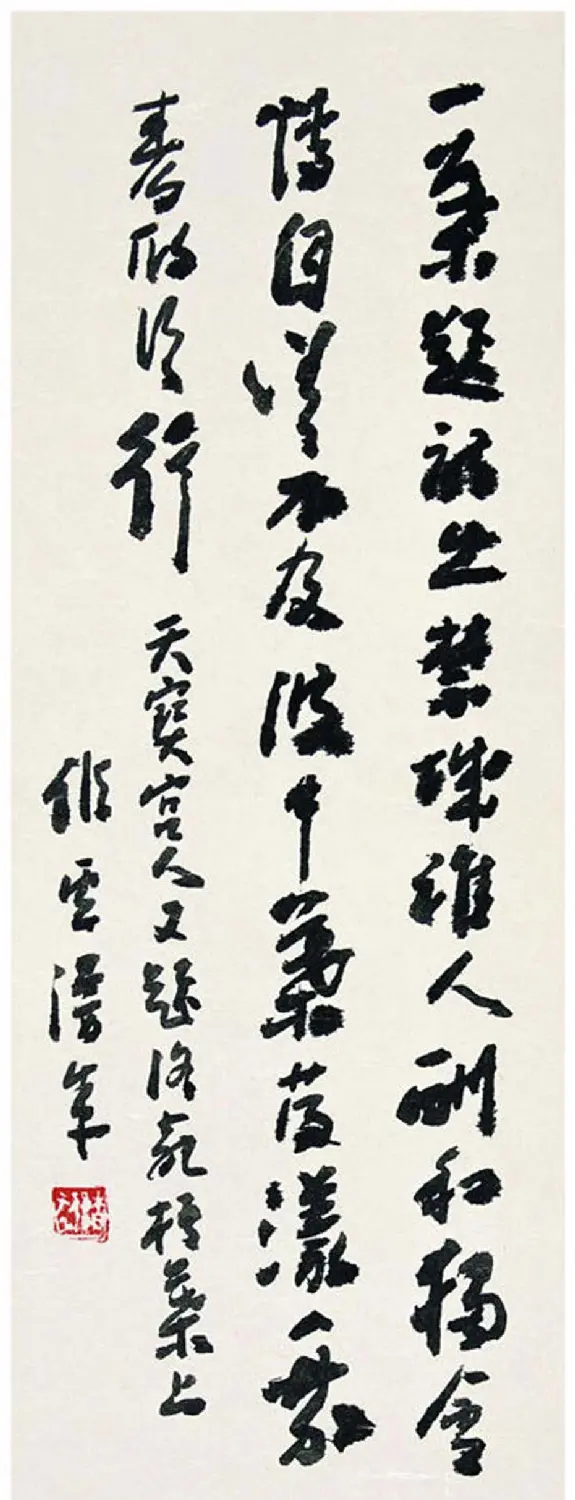 一葉題詩出禁城誰人酬和獨含
情自嗟不及波中葉蕩漾乘
春取次行 天寶宮人又題洛苑梧葉上